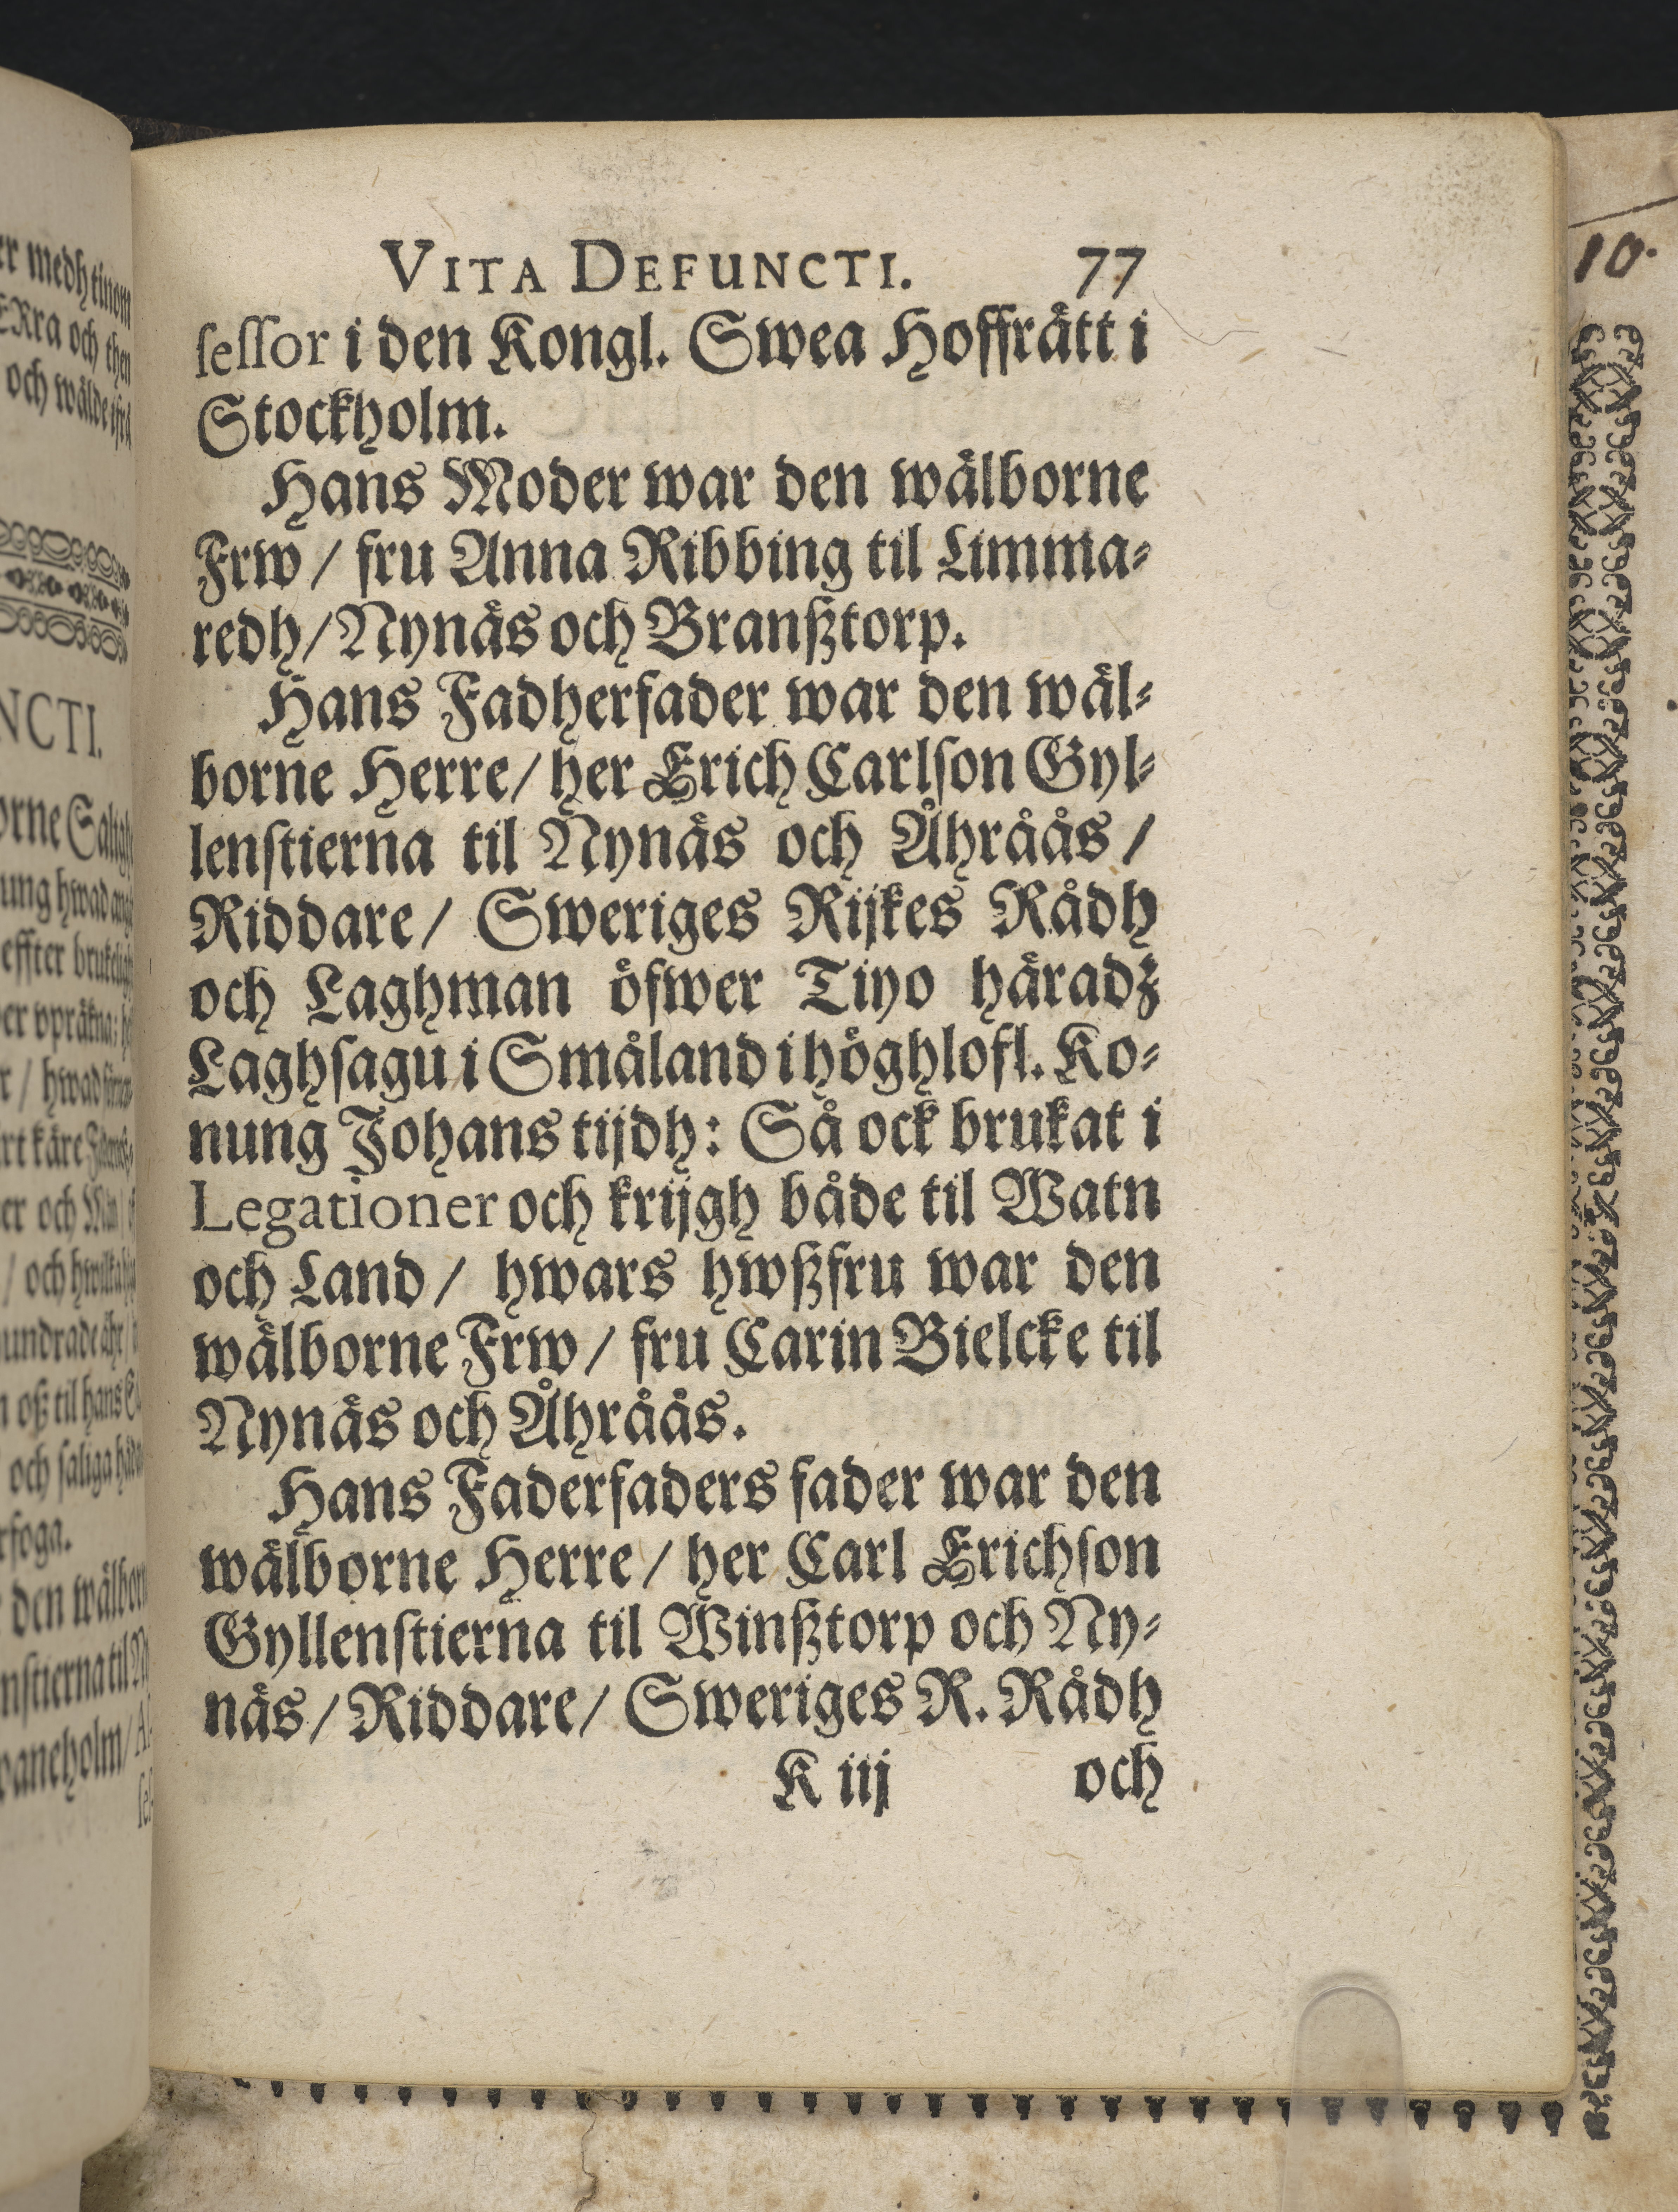 VITA DEFUNCTI. 77
ſeſſor i den Kongl. Swea Hoffrätt i
Stockholm.
Hans Moder war den wälborne
Frw / fru Anna Ribbing til Limma-
redh / Nynäs och Branßtorp.
Hans Fadherfader war den wäl-
borne Herre / her Erich Carlſon Gyl-
lenſtierna til Nynäs och Åhråås /
Riddare / Sweriges Rijkes Rådh
och Laghman öfwer Tiyo häradz
Laghſagu i Småland i höghlofl. Ko-
nung Johans tijdh: Så ock brukat i
Legationer och krijgh både til Watn
och Land / hwars hwßfru war den
wälborne Frw / fru Carin Bielcke til
Nynäs och Åhråås.
Hans Faderfaders fader war den
wälborne Herre / her Carl Erichſon
Gyllenſtierna til Winßtorp och Ny-
näs / Riddare / Sweriges R. Rådh
K iij och
10.